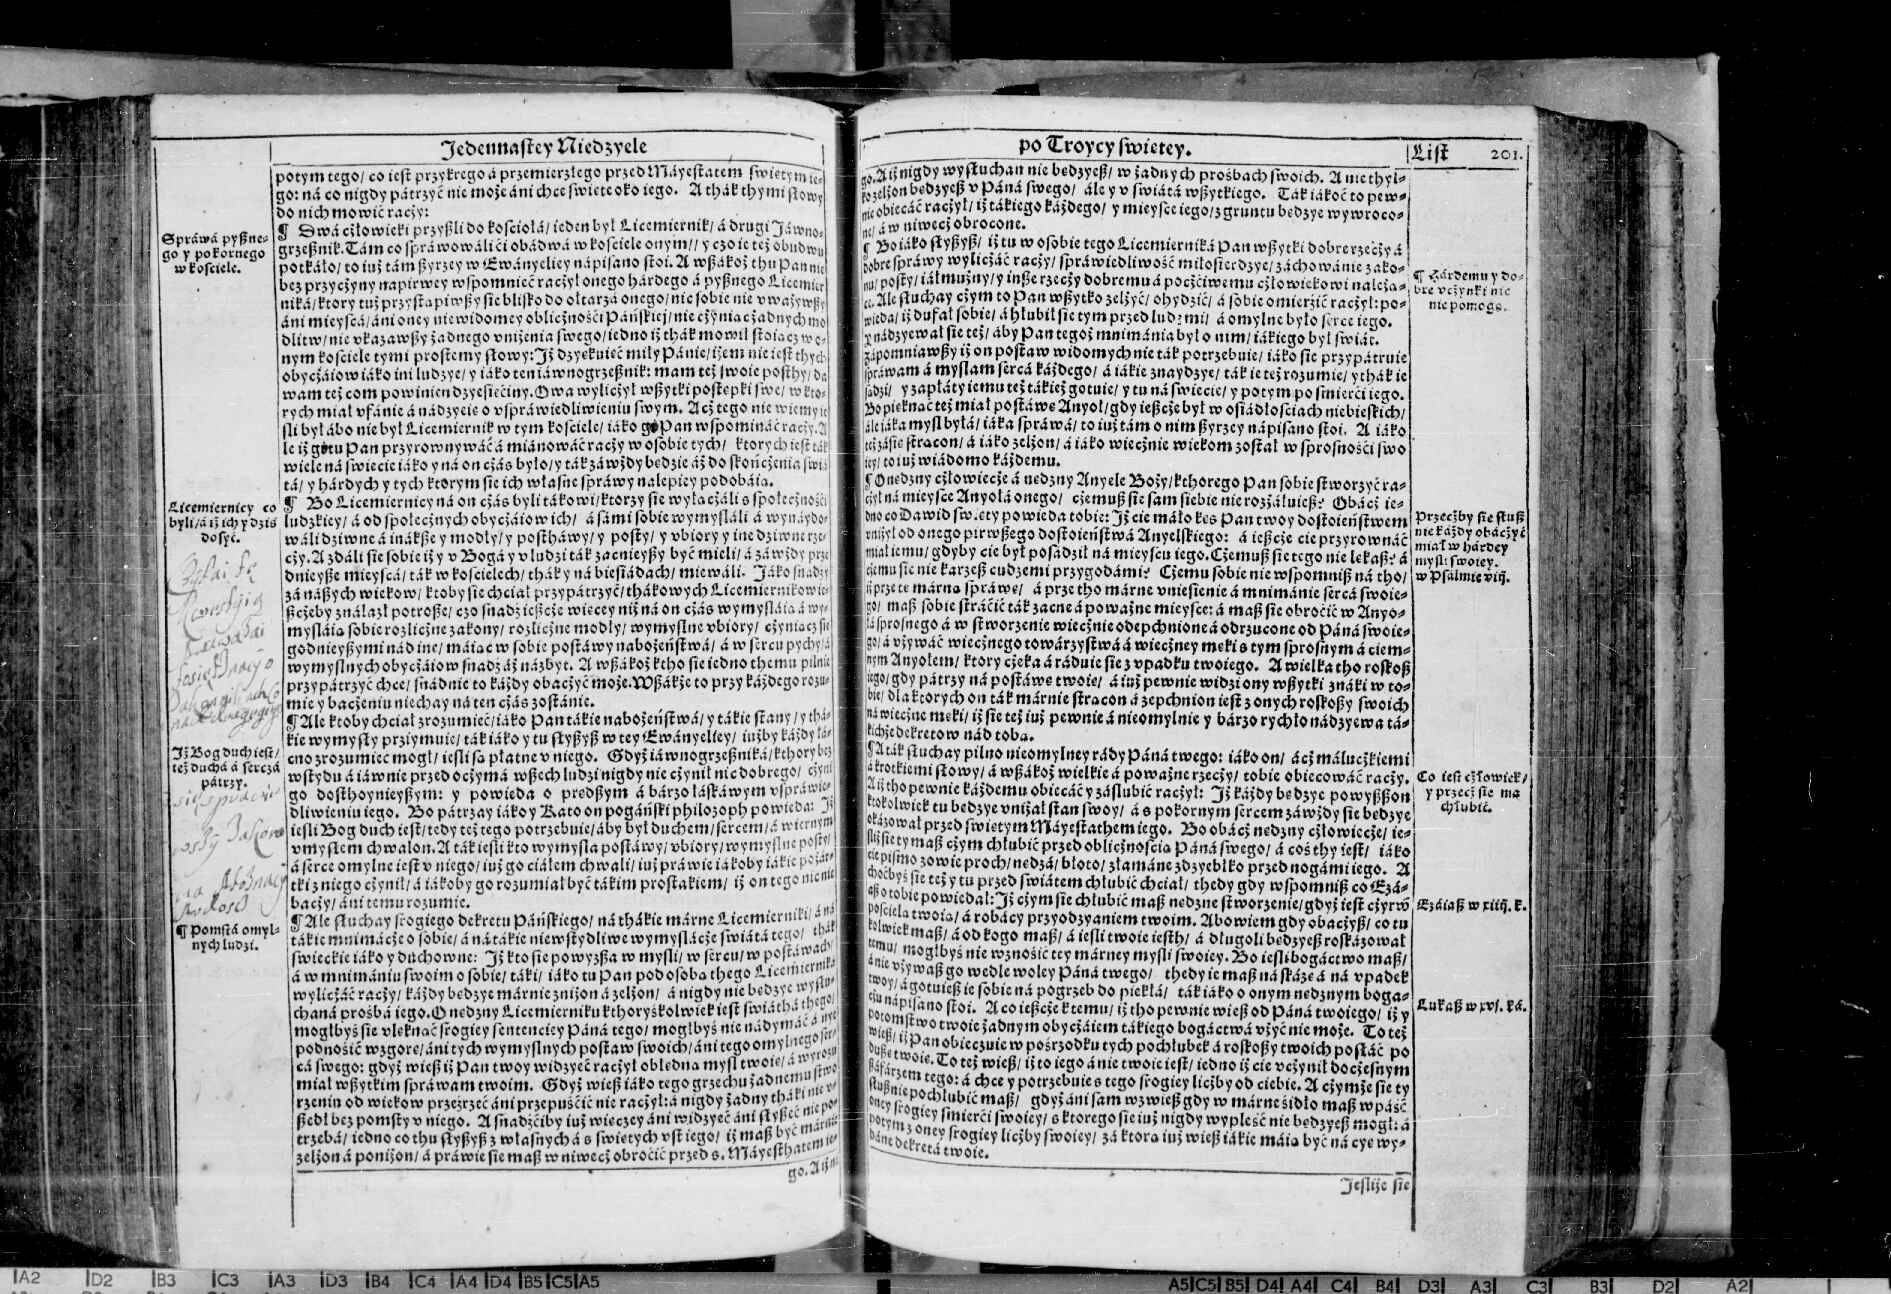 Jedennastey Niedzyele
potym tego/ co iest przykrego á przemierzlego przed Máyestatem swietym ie-
go: ná co nigdy pátrzyć nie może áni chce swiete oko iego. A thák thymi słowy
do nich mowić raczy:
¶ Dwá człowieki przyßli do kosciołá/ ieden był Licemiernik/ á drugi Jáwno-
grzeßnik. Tám co spráwowálići obádwá w kosciele onym// y czo ie też obudwu
potkáło/ to iuż tám ßyrzey w Ewányeliey nápisano stoi. A wßákoż thu Pan nie
bez przyczyny napirwey wspomnieć raczył onego hárdego á pyßnego Licemier
niká/ ktory tuż przystąpiwßy sie blisko do ołtarzá onego/ nic sobie nie vważywßy
áni mieyscá/ áni oney niewidomey obliczności Páńskiej/ nie czyniac żadnych mo
dlitw/ nie vkazawßy żadnego vniżenia swego/ iedno iż thák mowił stoiacz w o-
nym kosciele tymi prostemy słowy: Iż dzyekuieć miły Pánie/ iżem nie iest thych
obyczáiow iáko ini ludzye/ y iáko ten iáwnogrzeßnik: mam też swoie posthy/ da
wam też com powinien dzyesieciny. Owa wyliczył wßytki postepki swe/ w kto-
rych miał vfánie á nádzyeie o vspráwiedliwieniu swym. Acż tego nie wiemy ie
sli był ábo nie był Licemiernik w tym kosciele/ iáko go Pan wspomináć raczy. A
le iż go tu Pan przyrownywáć á miánowáć raczy w osobie tych/ ktorych iest ták
wiele ná swiecie iáko y ná on czás było/ y ták záwżdy bedzie áż do skończenia swiá
tá/ y hárdych y tych ktorym sie ich własne spráwy nalepiey podobáia.
¶ Bo Licemiernicy ná on czás byli tákowi/ ktorzy sie wyłaczáli s społeczności
ludzkiey/ á od społecznych obyczáiow ich/ á sámi sobie wymysláli á wynáydo-
wáli dziwne á inákße y modły/ y posthawy/ y posty/ y vbiory y ine dziwne rze-
czy. A zdáli sie sobie iż y v Bogá y v ludzi ták zacnieyßy być mieli/ á záwżdy prze
dnieyße mieyscá/ ták w kościelech/ thák y ná biesiádach/ miewáli. Jáko snadzy
zá náßych wiekow/ ktoby sie chciał przypátrzyć/ thákowych Licemiernikow ie-
ßczeby ználazł potroße/ czo snadż ießcze wiecey niż ná on czás wymysláia á wy-
mysláia sobie rozliczne zakony/ rozliczne modły/ wymyslne vbiory/ czyniacz sie
godnieyßymi nád ine/ máiac w sobie postáwy nabożeństwá/ á w sercu pychy/ á
wymyslnych obyczáiow snadż áż názbyt. A wßákoż ktho sie iedno themu pilnie
przypátrzyć chce/ snádnie to káżdy obaczyć może. Wßákże to przy káżdego rozu-
mie y baczeniu niechay ná ten czás zostánie.
¶ Ale ktoby chciał zrozumieć/ iáko Pan tákie nabożeństwá/ y tákie stany/ y thá-
kie wymysły przyimuie/ ták iáko y tu słyßyß w tey Ewányeliey/ iużby káżdy łá-
cno zrozumieć mogł/ iesli sa płatne v niego. Gdyż iáwnogrzeßniká/ kthory bez
wstydu á iáwnie przed oczymá wßech ludzi nigdy nie czynił nic dobrego/ czyni
go dosthoynieyßym: y powieda o predßym á bárzo łáskáwym vspráwie-
dliwieniu iego. Bo pátrzay iáko y Káto on pogáński philozoph powieda: Iż
iesli Bog duch iest/ tedy też tego potrzebuie/ áby był duchem/ sercem/ á wiernym
vmysłem chwalon. A ták iesli kto wymysla postáwy/ vbiory/ wymyslne posty/
á serce omylne iest v niego/ iuż go ciáłem chwali/ iuż práwie iákoby iákie pożát-
ki z niego czynił/ á iákoby go rozumiał być tákim prostakiem/ iż on tego nic nie
baczy/ áni temu rozumie.
¶ Ale słuchay srogiego dekretu Páńskiego/ ná thákie márne Licemierniki/ á ná
tákie mnimácze o sobie/ á ná tákie niewstydliwe wymyslácze swiátá tego/ thák
swieckie iáko y duchowne: Iż kto sie powyzßa w mysli/ w sercu/ w postáwach/
á w mnimániu swoim o sobie/ táki/ iáko tu Pan pod osoba thego Licemierniká
wyliczáć raczy/ káżdy bedzye márnie zniżon á zelżon/ á nigdy nie bedzye wysłu-
chaná prośbá iego. O nedzny Licemierniku kthoryśkolwiek iest swiáthá thego/
mogłbyś sie vleknąć srogiey sentenciey Páná tego/ mogłbyś nie nádymáć á nye
podnośić wzgore/ áni tych wymyslnych postaw swoich/ áni tego omylnego ser-
cá swego: gdyż wieß iż Pan twoy widzyeć raczył obłedna mysl twoie/ á wyrozu
miał wßytkim spráwam twoim. Gdyż wieß iáko tego grzechu żadnemu stwo
rzeniu od wiekow przeżrzeć áni przepuśćić nie raczył: á nigdy żadny tháki nie v-
ßedł bez pomsty v niego. A snadźćiby iuż wieczey áni widzyeć áni słyßeć nie po-
trzebá/ iedno co thu słyßyß z własnych á s swietych vst iego/ iż maß być márnie
zelżon á poniżon/ á práwie sie maß w niwecz obroćić przed s. Máyesthatem ie-
go. A iż ni
Spráwá pyßne-
go y pokornego
w kosciele.
Licemiernicy co
byli/ á iż ich y dziś
dosyć.
Iż Bog duch iest/
też duchá á sercá
pátrzy.
¶ Pomstá omyl-
nych ludzi.
po Troycy swietey.
List 201.
go. A iż nigdy wysłuchan nie bedzyeß/ w żadnych prośbach swoich. A nie thyl-
ko zelżon bedzyeß v Páná swego/ ále y v swiátá wßytkiego. Ták iákoć to pew-
nie obiecáć raczył/ iż tákiego káżdego/ y mieysce iego/ z gruntu bedzye wywroco-
ne/ á w niwecz obrocone.
¶ Bo iáko słyßyß/ iż tu w osobie tego Licemierniká Pan wßytki dobre rzeczy á
dobre spráwy wyliczáć raczy/ spráwiedliwość miłosierdzye/ záchowánie zako-
nu/ posty/ iáłmużny/ y inße rzeczy dobremu á poczciwemu człowiekowi należa-
ce. Ale słuchay czym to Pan wßytko zelżyć/ ohydzić/ á sobie omierzić raczył: po-
wieda/ iż dufał sobie/ á hłubił sie tym przed ludzmi/ á omylne było serce iego.
Y nádzyewał sie też/ áby Pan tegoż mnimánia był o nim/ iákiego był swiát.
Zápomniawßy iż on postaw widomych nie ták potrzebuie/ iáko sie przypátruie
spráwam á myslam sercá káżdego/ á iákie znaydzye/ ták ie też rozumie/ y thák ie
sądzi/ y zapłáty iemu też tákież gotuie/ y tu ná swiecie/ y potym po śmierći iego.
Bo pieknać też miał postáwe Anyoł/ gdy ießcze był w osiádłościach niebieskich/
ále iáka mysl byłá/ iáka spráwá/ to iuż tám o nim ßyrzey nápisano stoi. A iáko
też zásie stracon/ á iáko zelżon/ á iáko wiecznie wiekom został w sprosności swo
iey/ to iuż wiádomo káżdemu.
¶ O nedzny człowiecze á nedzny Anyele Boży/ kthorego Pan sobie stworzyć ra-
czył ná mieysce Anyołá onego/ czemuß sie sam siebie nie rozżáluieß? Obácz ie-
dno co Dawid swiety powieda tobie: Iż cie máło kes Pan twoy dostoieństwem
vniżył od onego pirwßego dostoieństwá Anyelskiego: á ießcze cie przyrownáć
miał iemu/ gdyby cie był posádził ná mieyscu iego. Czemuß sie tego nie lekaß? á
czemu sie nie karzeß cudzemi przygodámi? Czemu sobie nie wspomniß ná tho/
iż prze te márna spráwe/ á prze tho márne vniesienie á mnimánie sercá swoie-
go/ maß sobie stráćić ták zacne á poważne mieysce: á maß sie obroćić w Anyo-
łá sprosnego á w stworzenie wiecznie odepchnione á odrzucone od Páná swoie-
go/ á vżywáć wiecznego towárzystwá á wieczney meki s tym sprosnym á ciem-
nym Anyołem/ ktory czeka á ráduie sie z vpadku twoiego. A wielka tho roskoß
iego/ gdy pátrzy ná postáwe twoie/ á iuż pewnie widzi ony wßytki znáki w to-
bie/ dla ktorych on ták márnie stracon á zepchnion iest z onych roskoßy swoich
ná wieczne meki/ iż sie też iuż pewnie á nieomylnie y bárzo rychło nádzyewa tá-
kichże dekretow nád toba.
¶ A ták słuchay pilno nieomylney rády Páná twego: iáko on/ ácz máluczkiemi
á krotkiemi słowy/ á wßákoż wielkie á poważne rzeczy/ tobie obiecowáć raczy.
A iż tho pewnie káżdemu obiecáć y záślubić raczył: Iż káżdy bedzye powyßßon
ktokolwiek tu bedzye vniżał stan swoy/ á s pokornym sercem záwżdy sie bedzye
okázował przed swietym Máyestathem iego. Bo obácz nedzny człowiecze/ ie-
sliż sie ty maß czym chłubić przed oblicznościa Páná swego/ á coś thy iest/ iáko
cie pismo zowie proch/ nedza/ błoto/ złamáne zdzyebłko przed nogámi iego. A
choćbyś sie też y tu przed swiátem chłubić chciał/ thedy gdy wspomniß co Ezá-
aß o tobie powiedał: Iż czym sie chłubić maß nedzne stworzenie/ gdyż iest czyrw
pościelá twoiá/ á robacy przyodzyaniem twoim. Abowiem gdy obaczyß/ co tu
kolwiek maß/ á od kogo maß/ á iesli twoie iesth/ á długoli bedzyeß roskázował
temu/ mogłbyś nie wznośić tey márney mysli swoiey. Bo iesli bogáctwo maß/
á nie vżywaß go wedle woley Páná twego/ thedy ie maß ná skáze á ná vpádek
twoy/ á gotuieß ie sobie ná pogrzeb do piekłá/ ták iáko o onym nedznym boga-
czu nápisano stoi. A co ießcze k temu/ iż tho pewnie wieß od Páná twoiego/ iż y
potomstwo twoie żadnym obyczáiem tákiego bogáctwá vżyć nie może. To też
wieß/ iż Pan obiecuie w pośrzodku tych pochłubek á roskoßy twoich postáć po
duße twoie. To też wieß/ iż to iego á nie twoie iest/ iedno iż cie vczynił doczesnym
ßáfárzem tego: á chce y potrzebuie s tego srogiey liczby od ciebie. A czymże sie ty
słußnie pochłubić maß/ gdyż áni sam wzwieß gdy w márne śidło maß wpáść
oney srogiey śmierći swoiey/ s ktorego sie iuż nigdy wypleść nie bedzyeß mogł: á
potym z oney srogiey liczby swoiey/ zá ktora iuż wieß iákie máia być ná cye wy-
dáne dekretá twoie.
Jesliże sie
¶ Hárdemu y do-
bre vczynki nic
nie pomogą.
Przeczby sie słuß
nie káżdy obaczyć
miał w hárdey
mysli swoiey.
w Psálmie viij.
Co iest człowiek/
y przecz sie ma
chłubić.
Ezáiaß w xiiij. k.
Lukaß w xvj. ká.
A2 D2 B3 C3 A3 D3 B4 C4 A4 D4 B5 C5 A5
A5 C5 B5 D4 A4 C4 B4 D3 A3 C3 B3 D2 A2